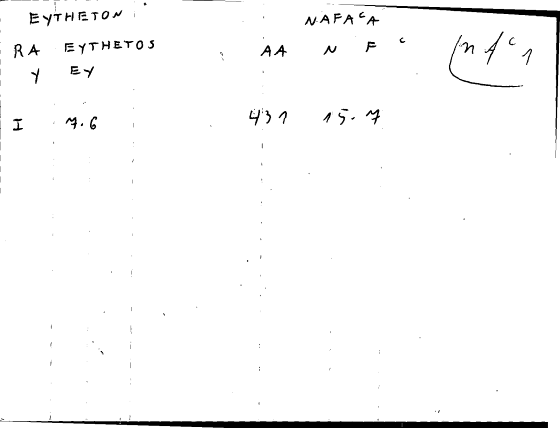 EYTHETON NAFACA
RA EYTHETOS AA N F C nfc1
Y EY
I 7.6 431 15.7